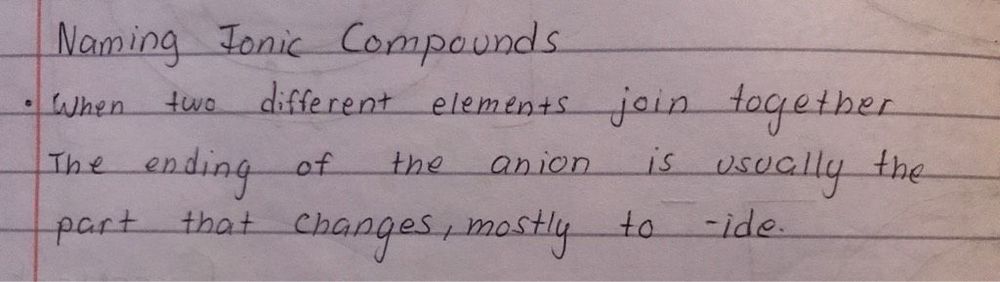 Naming Ionic Compounds
• When two different elements join together
The ending of the anion is usually the
part that changes, mostly to -ide.